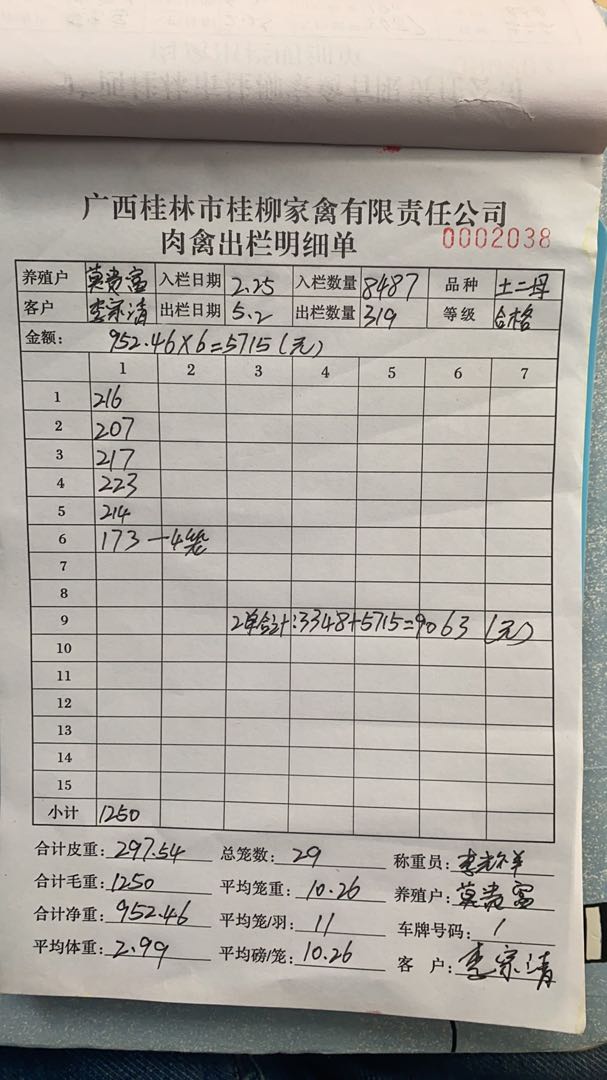 广西桂林市桂柳家禽有限责任公司
肉禽出栏明细单 0002038
养殖户 莫贵富 入栏日期 2.25 入栏数量 8487 品种 土二号
客户 李宗清 出栏日期 5.2 出栏数量 319 等级 合格
金额: 952.46×6=5715(元)
1 2 3 4 5 6 7
1 216
2 207
3 217
4 223
5 214
6 173-4笼
7
8
9 2单合计:3348+5715=9063(元)
10
11
12
13
14
15
小计 1250
合计皮重: 297.54 总笼数: 29 称重员: 李光祥
合计毛重: 1250 平均笼重: 10.26 养殖户: 莫贵富
合计净重: 952.46 平均笼/羽: 11 车牌号码: /
平均体重: 2.99 平均磅/笼: 10.26 客 户: 李宗清